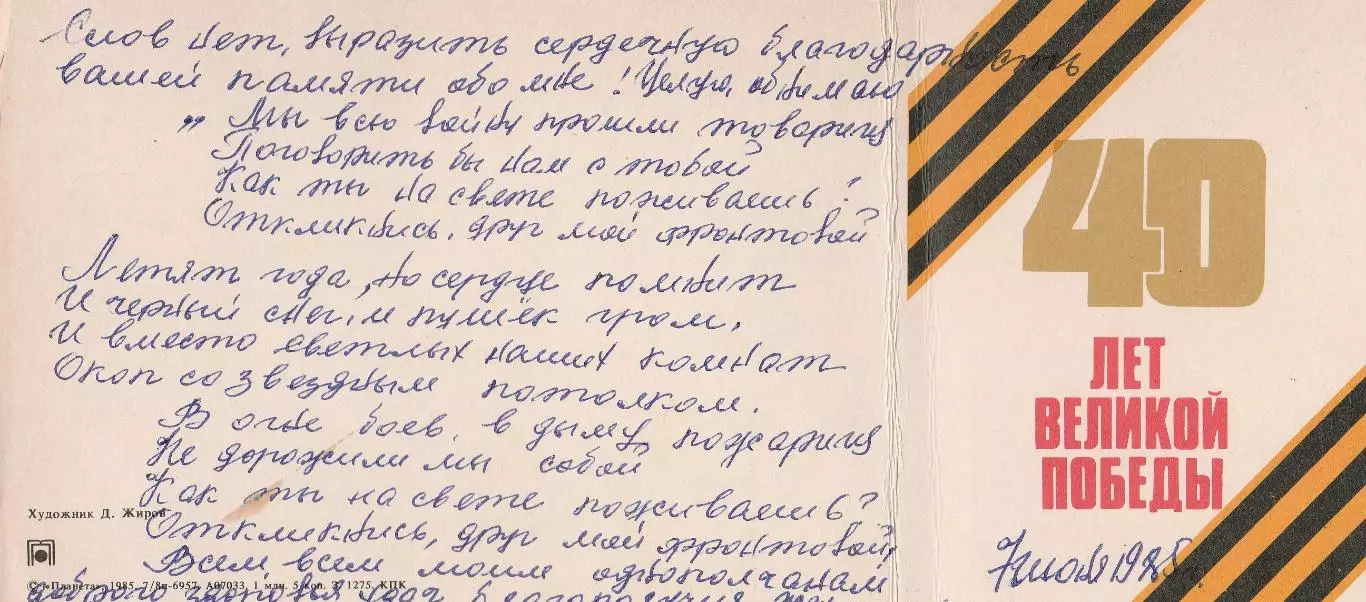 Слов нет, выразить сердечную благодарность
вашей памяти обо мне! Целую, обнимаю
„ Мы всю войну прошли товарищ
Поговорить бы нам с тобой
Как ты на свете поживаешь?
Откликнись, друг мой фронтовой
Летят года, но сердце помнит
И черный снег, и пушек гром,
И вместо светлых наших комнат
Окоп со звездным потолком.
В огне боев, в дыму пожарищ
Не дорожили мы собой
Как ты на свете поживаешь?
Откликнись, друг мой фронтовой,
Всем всем моим однополчанам
доброго здоровья благополучия
Художник Д. Жиров
© «Планета», 1985. 7/8п-6957. А07033, 1 млн. 5 коп. З. 1275. КПК
40
ЛЕТ
ВЕЛИКОЙ
ПОБЕДЫ
1985